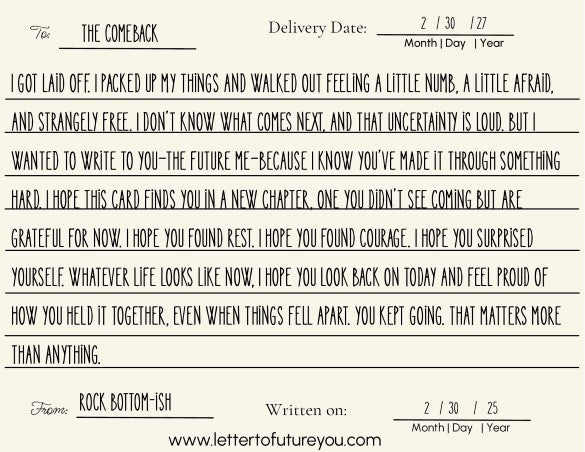 To: THE COMEBACK Delivery Date: 2 / 30 / 27
Month | Day | Year
I GOT LAID OFF. I PACKED UP MY THINGS AND WALKED OUT FEELING A LITTLE NUMB, A LITTLE AFRAID,
AND STRANGELY FREE. I DON'T KNOW WHAT COMES NEXT, AND THAT UNCERTAINTY IS LOUD. BUT I
WANTED TO WRITE TO YOU—THE FUTURE ME—BECAUSE I KNOW YOU'VE MADE IT THROUGH SOMETHING
HARD. I HOPE THIS CARD FINDS YOU IN A NEW CHAPTER, ONE YOU DIDN'T SEE COMING BUT ARE
GRATEFUL FOR NOW. I HOPE YOU FOUND REST. I HOPE YOU FOUND COURAGE. I HOPE YOU SURPRISED
YOURSELF. WHATEVER LIFE LOOKS LIKE NOW, I HOPE YOU LOOK BACK ON TODAY AND FEEL PROUD OF
HOW YOU HELD IT TOGETHER, EVEN WHEN THINGS FELL APART. YOU KEPT GOING. THAT MATTERS MORE
THAN ANYTHING.
From: ROCK BOTTOM-ISH Written on: 2 / 30 / 25
Month | Day | Year
www.lettertofutureyou.com